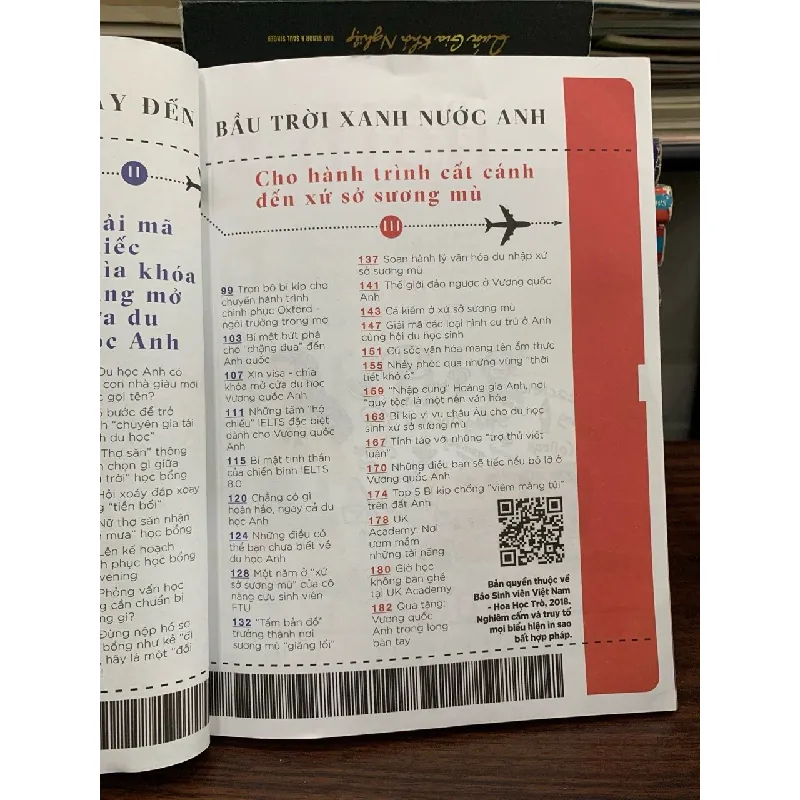 Quốc Gia Khởi Nghiệp
DAN SENOR & SAUL SINGER
AY ĐẾN
BẦU TRỜI XANH NƯỚC ANH
II
ải mã
iếc
ìa khóa
ng mở
ửa du
ọc Anh
Du học Anh có
con nhà giàu mới
c gọi tên?
bước để trở
h "chuyên gia tài
h du học"
"Thợ săn" thông
h chọn gì giữa
trời" học bổng
Hỏi xoáy đáp xoay
g "tiền bối"
Nữ thợ săn nhận
mưa" học bổng
Lên kế hoạch
h phục học bổng
vening
Phỏng vấn học
g cần chuẩn bị
ng gì?
Đừng nộp hồ sơ
bổng như kể "ối
, hãy là một "đối
Cho hành trình cất cánh
đến xứ sở sương mù
III
99 Trọn bộ bí kíp cho
chuyến hành trình
chinh phục Oxford -
ngôi trường trong mơ
103 Bí mật bứt phá
cho "chặng đua" đến
Anh quốc
107 Xin visa - chìa
khóa mở cửa du học
Vương quốc Anh
111 Những tấm "hộ
chiếu" IELTS đặc biệt
dành cho Vương quốc
Anh
115 Bí mật tinh thần
của chiến binh IELTS
8.0
120 Chẳng có gì
hoàn hảo, ngay cả du
học Anh
124 Những điều có
thể bạn chưa biết về
du học Anh
128 Một năm ở "xứ
sở sương mù" của cô
nàng cựu sinh viên
FTU
132 "Tấm bản đồ"
trưởng thành nơi
sương mù "giăng lối"
137 Soạn hành lý văn hóa du nhập xứ
sở sương mù
141 Thế giới đảo ngược ở Vương quốc
Anh
143 Cá kiếm ở xứ sở sương mù
147 Giải mã các loại hình cư trú ở Anh
cùng hội du học sinh
151 Cú sốc văn hóa mang tên ẩm thực
155 Nhảy phóc qua những vùng "thời
tiết khó ở"
159 "Nhập cung" Hoàng gia Anh, nơi
"quy tộc" là một nền văn hóa
163 Bí kíp vi vu châu Âu cho du học
sinh xứ sở sương mù
167 Tỉnh táo với những "trợ thủ viết
luận"
170 Những điều bạn sẽ tiếc nếu bỏ lỡ ở
Vương quốc Anh
174 Top 5 Bí kíp chống "viêm màng túi"
trên đất Anh
178 UK
Academy: Nơi
ươm mầm
những tài năng
180 Giờ học
không bàn ghế
tại UK Academy
182 Quà tặng:
Vương quốc
Anh trong lòng
bàn tay
Bản quyền thuộc về
Báo Sinh viên Việt Nam
- Hoa Học Trò, 2018.
Nghiêm cấm và truy tố
mọi biểu hiện in sao
bất hợp pháp.